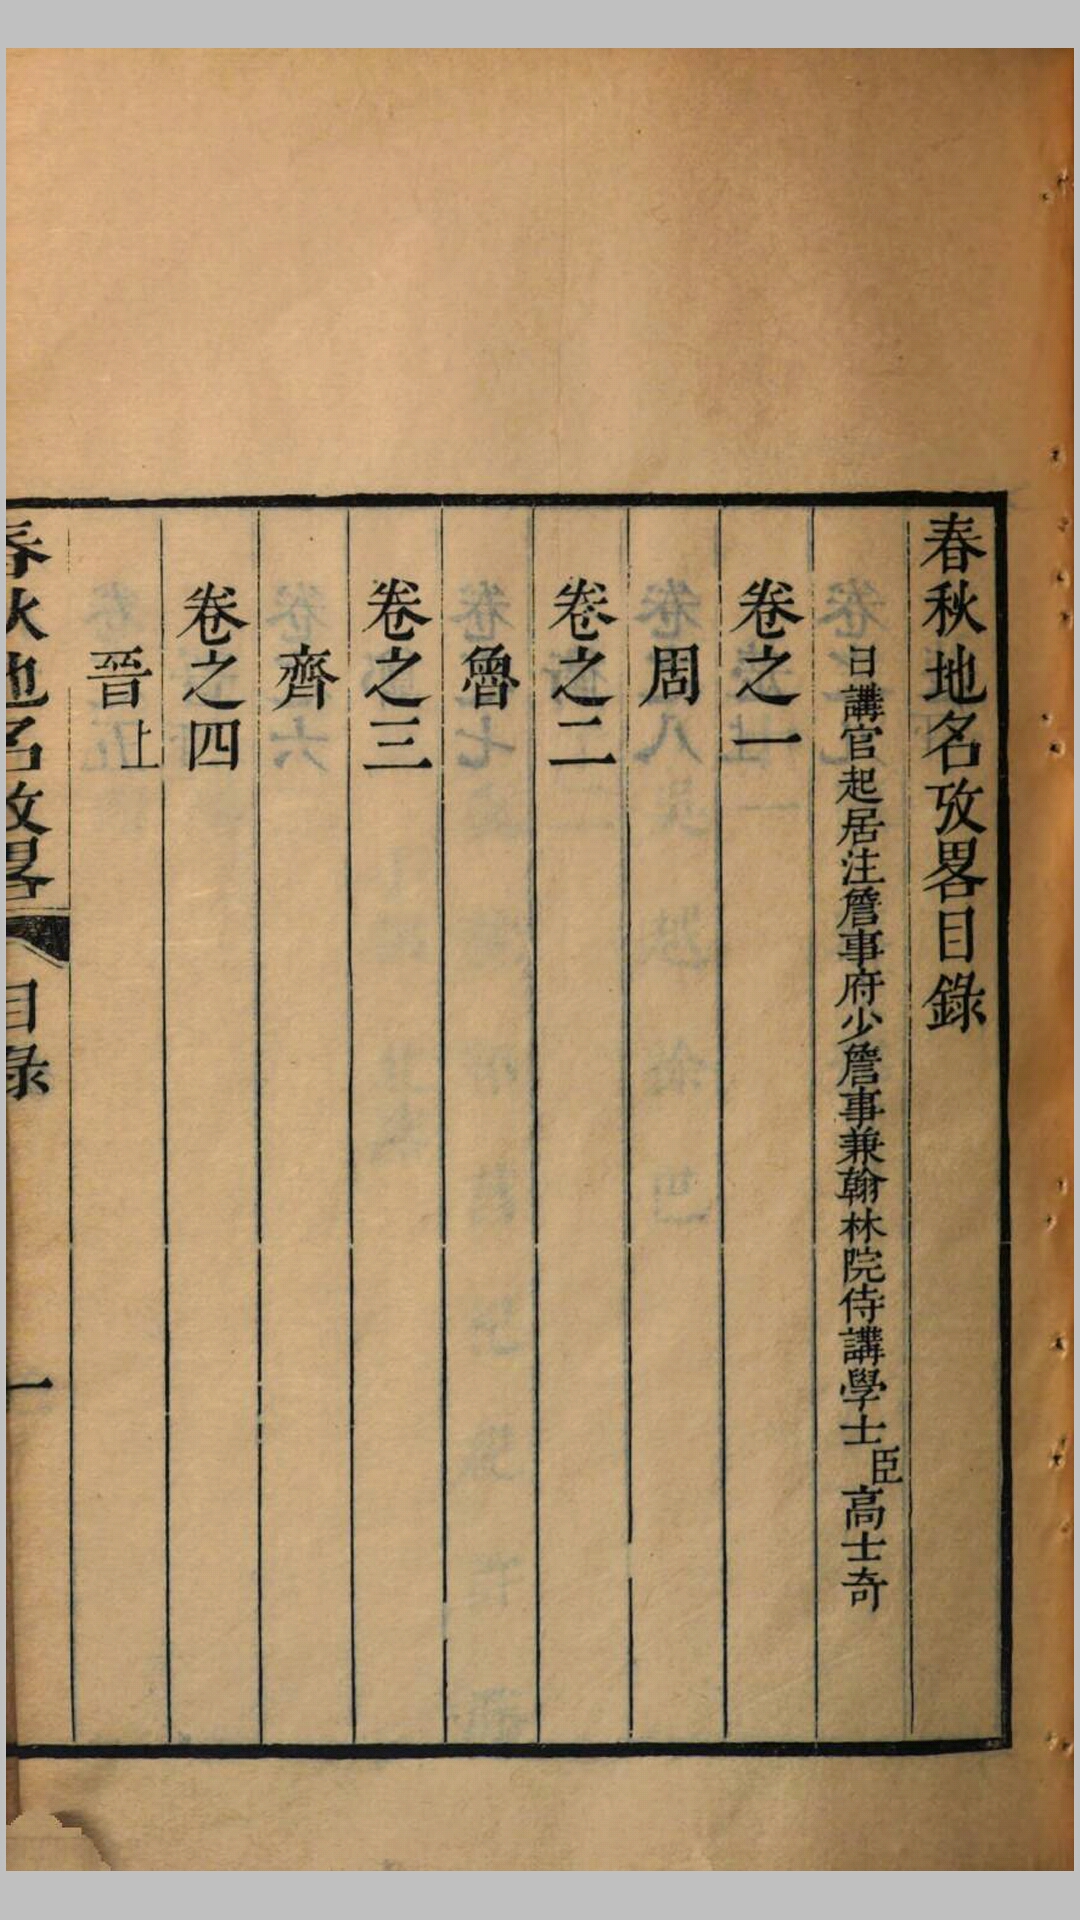 春秋地名攷畧目錄
日講官起居注詹事府少詹事兼翰林院侍講學士臣高士奇
卷之一
周
卷之二
魯
卷之三
齊
卷之四
晉上
春秋地名攷畧 目錄 一